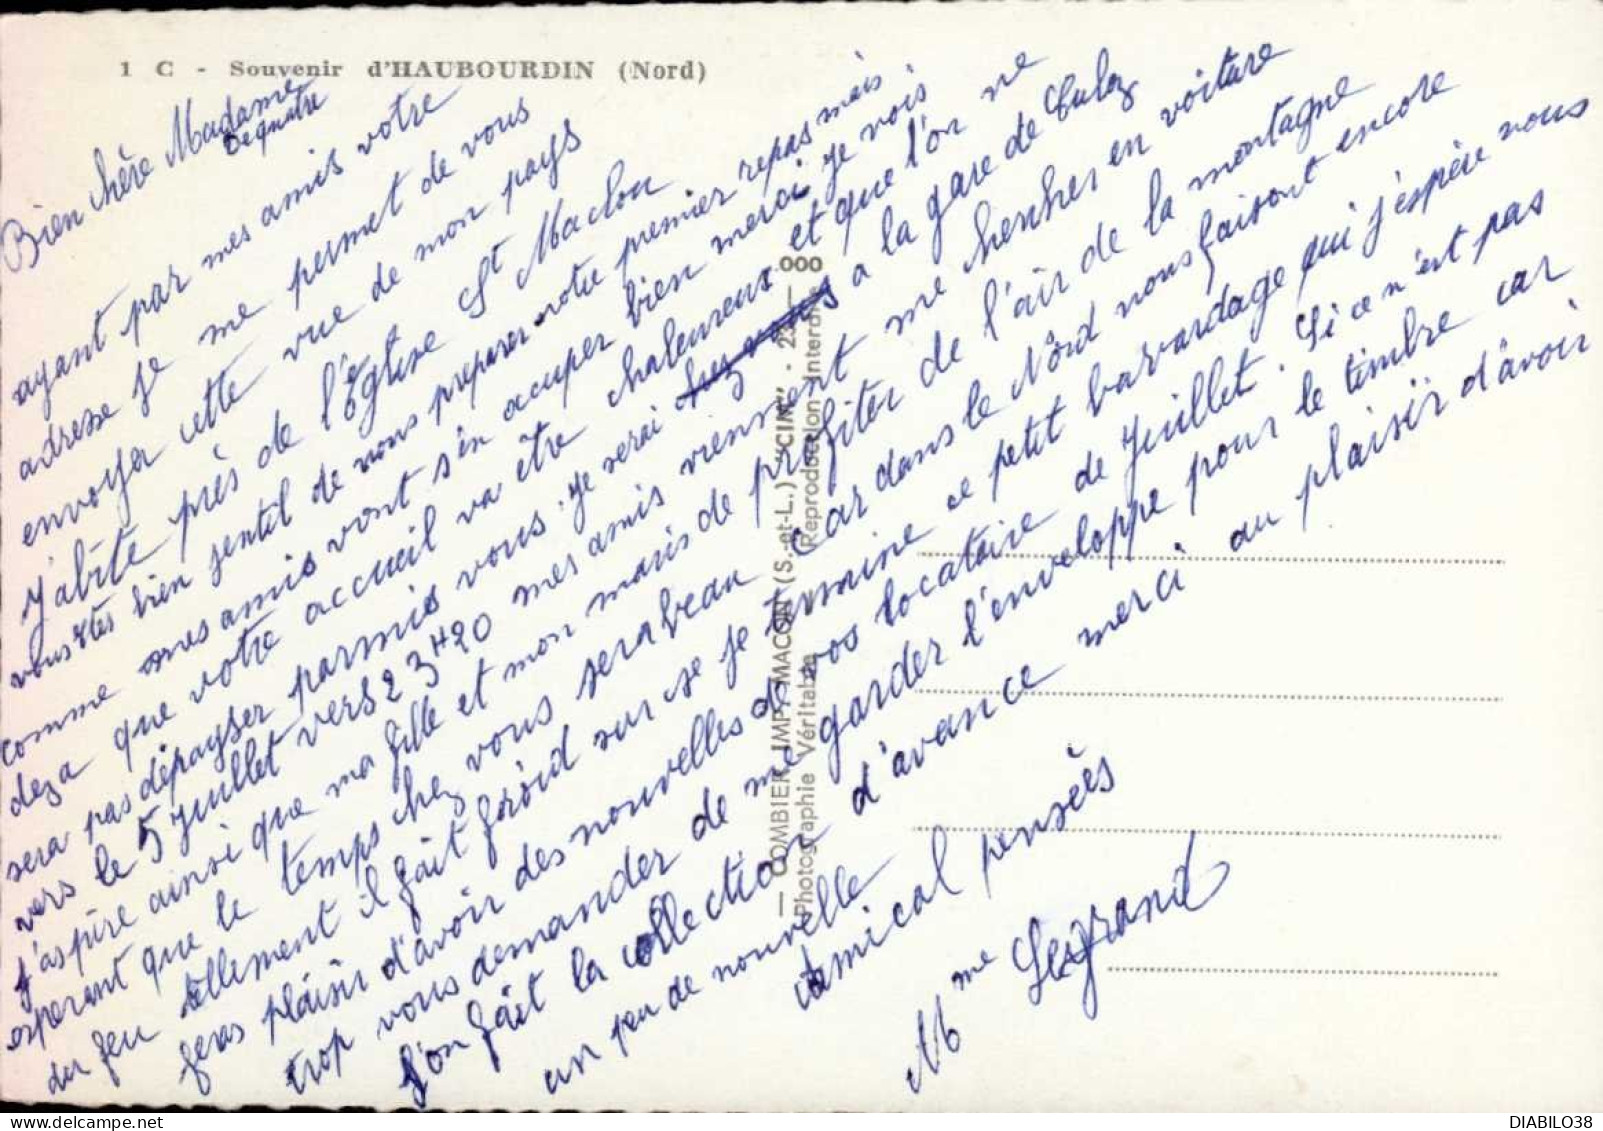 1 C - Souvenir d'HAUBOURDIN (Nord)
Bien chère Madame
Dequatre
ayant par mes amis votre
adresse je me permet de vous
envoyer cette vue de mon pays
j'abite près de l'Église St Maclou
vous êtes bien gentil de nous préparer notre premier repas mais
comme mes amis vont s'en occuper bien merci je vois
deza que votre accueil va être chaleureux et que l'on ne
sera pas dépayser parmis vous. je serai chez vous a la gare de Culoz
vers le 5 juillet vers 23H20 mes amis viennent me chercher en voiture
j'aspire ainsi que ma fille et mon maris de profiter de l'air de la montagne
esperant que le temps chez vous sera beau car dans le Nord nous faisont encore
du feu tellement il fait froid sur se je termine ce petit bavardage qui j'espère vous
feras plaisir d'avoir des nouvelles de vos locataire de juillet. Si ce n'est pas
trop vous demander de me garder l'enveloppe pour le timbre car
l'on fait la collection d'avance merci au plaisir d'avoir
un peu de nouvelle
amical pensées
Mme Legrand
— COMBIER IMP. MACON (S.-et-L.) "CIM" - 23 — 000
Photographie Véritable Reproduction interdite
DIABILO38